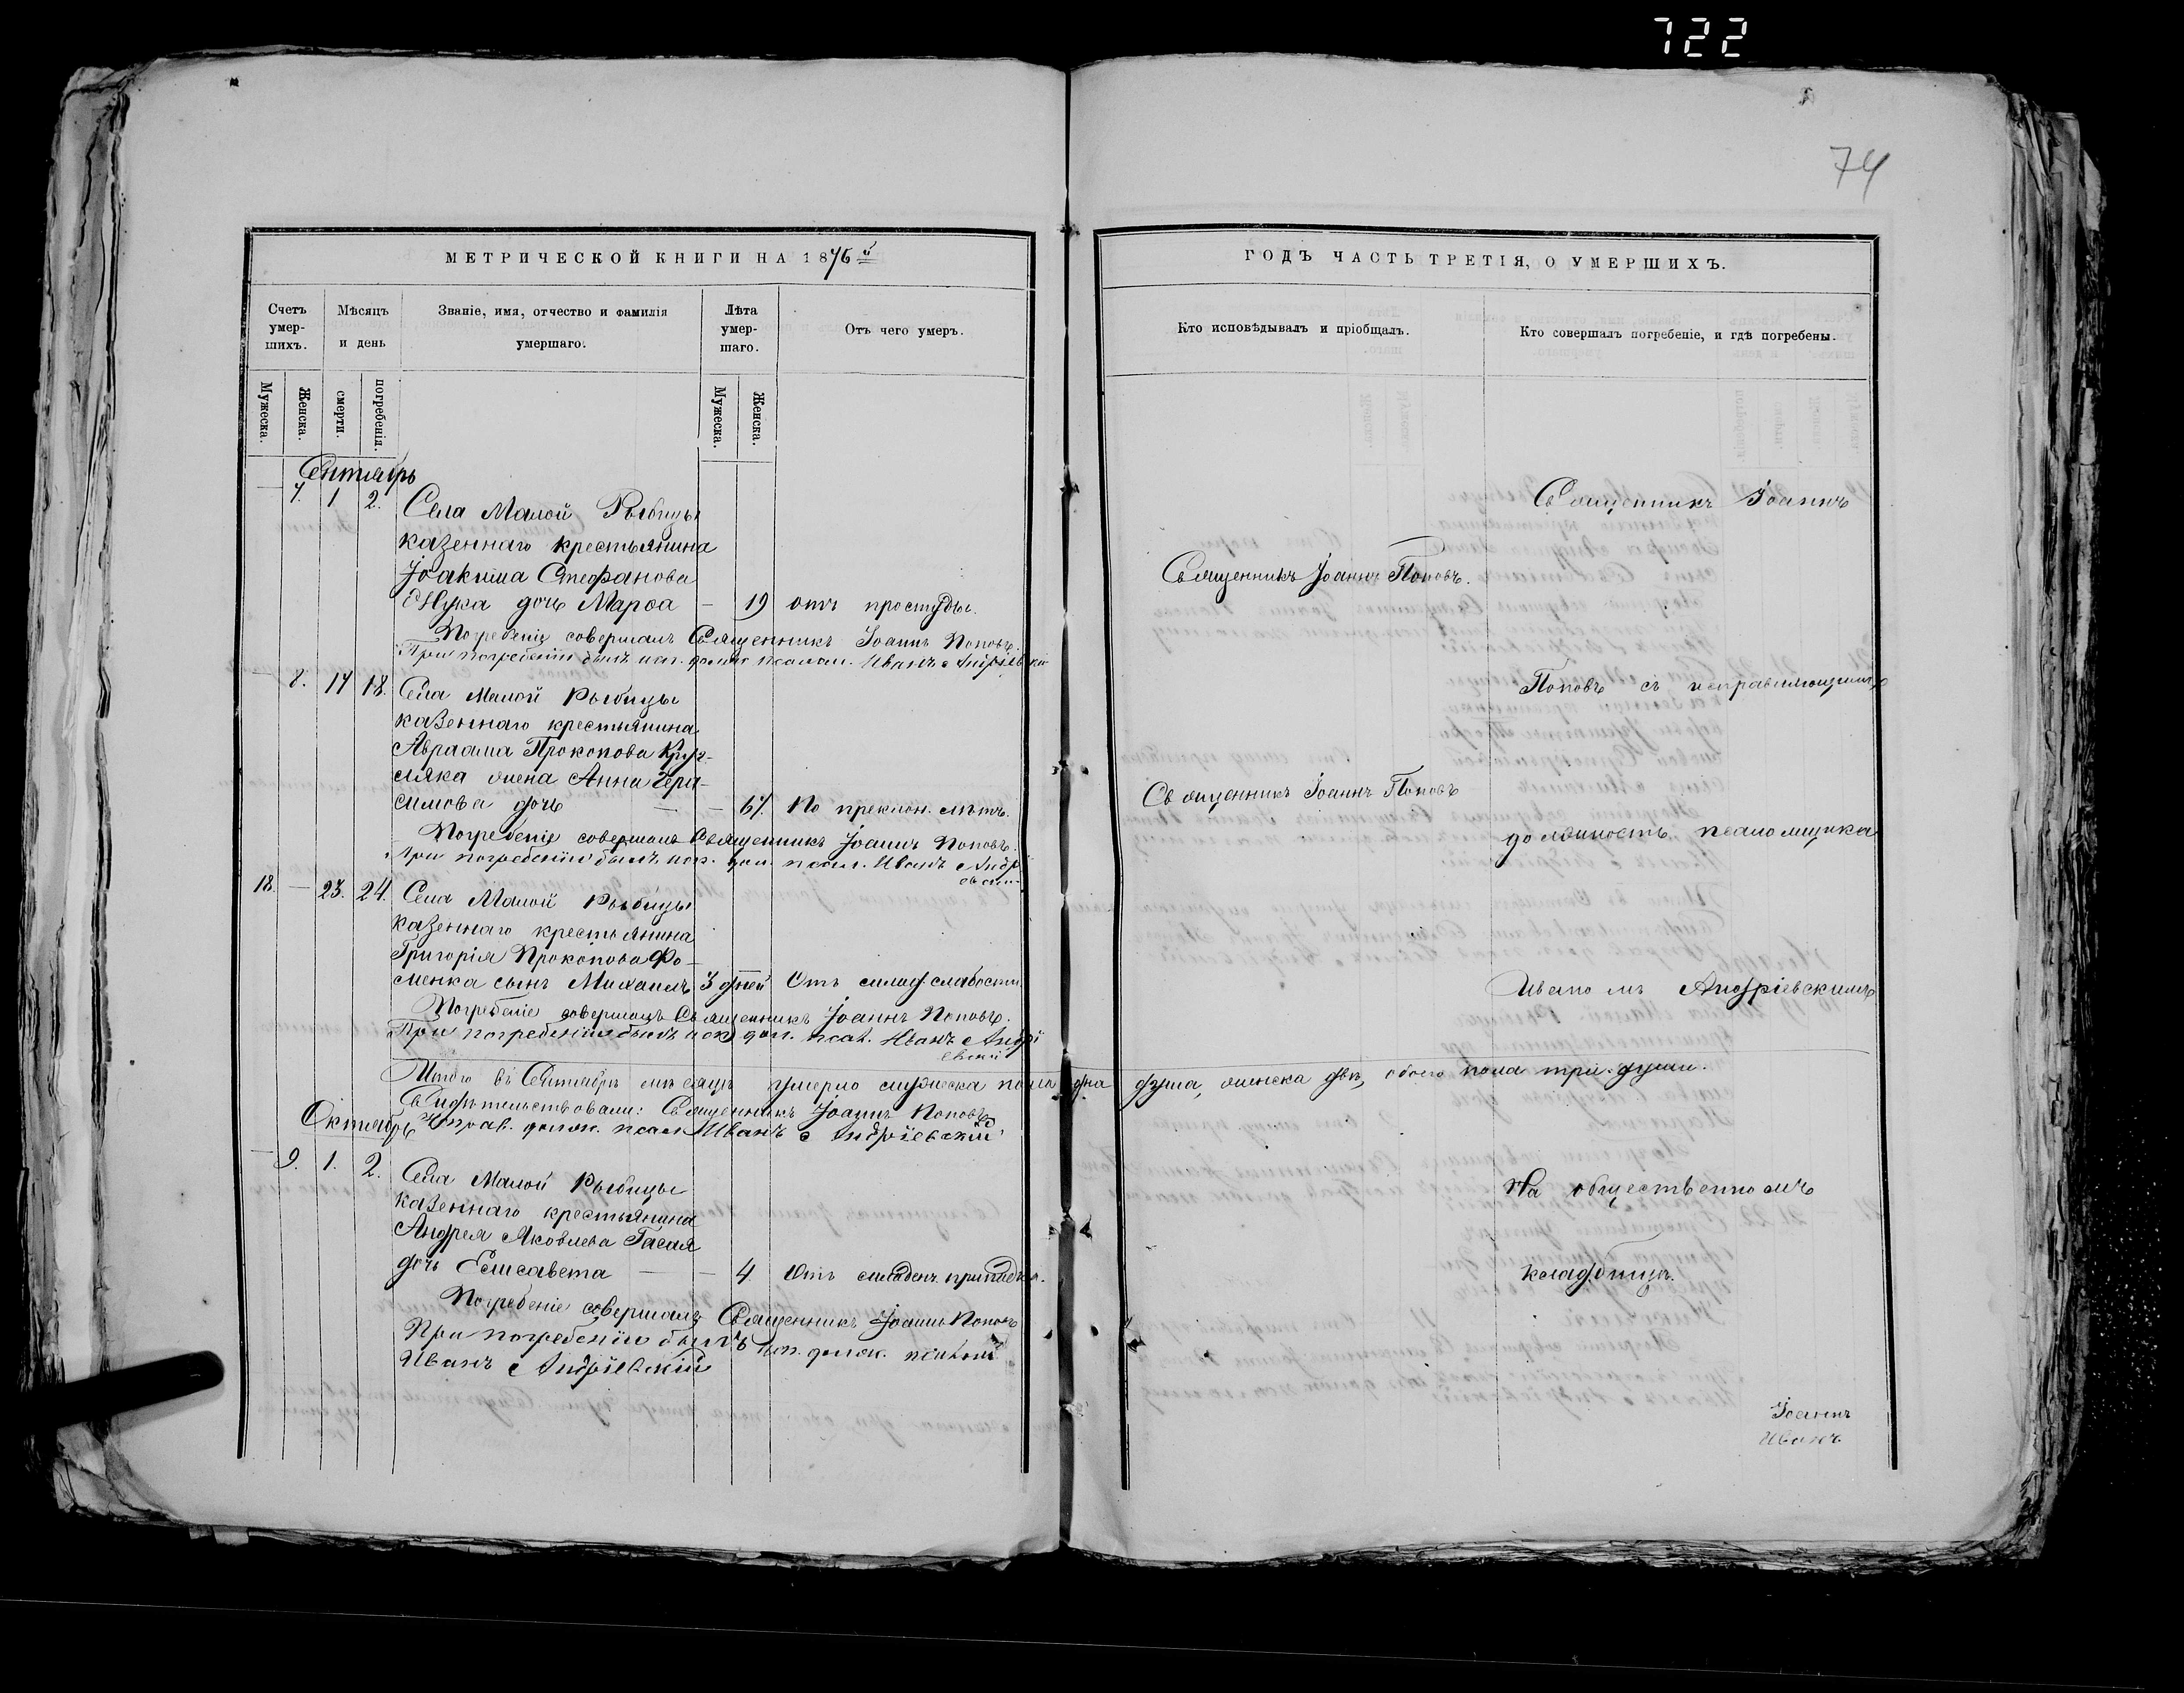 722
74
МЕТРИЧЕСКОЙ КНИГИ НА 1876й
Счетъ умер-шихъ.
Мѣсяцъ и день
Званіе, имя, отчество и фамилія умершаго.
Лѣта умер-шаго.
Отъ чего умеръ.
Мужеска.
Женска.
смерти.
погребенія.
Мужеска.
Женска.
Сентябрь
— 7. 1 2. Села Малой Рыбицы
казеннаго крестьянина
Іоакима Стефанова
дочь Марѳа — 19 отъ простуды.
Погребеніе совершалъ Священникъ Іоаннъ Поповъ.
При погребеніи былъ исп. должн. псалом. Иванъ Андріевскій
— 8. 17 18. Села Малой Рыбицы
казеннаго крестьянина
Авраама Прокопова
жена Анна Гера-
симова дочь — — 67. По преклон. лѣтъ.
Погребеніе совершалъ Священникъ Іоаннъ Поповъ.
При погребеніи былъ исп. дол. псал. Иванъ Андрі
евскій
18. — 23. 24. Села Малой Рыбицы
казеннаго крестьянина
Григорія Прокопова Фо-
менка сынъ Михаилъ 3 дней Отъ слабости.
Погребеніе совершалъ Священникъ Іоаннъ Поповъ.
При погребеніи былъ исп. дол. псал. Иванъ Андрі
евскій
Итого въ Сентябрѣ мѣсяцѣ умерло мужеска пола одна
Свидѣтельствовали: Священникъ Іоаннъ Поповъ
Октябрь
Исправ. должн. псалм Иванъ Андріевскій
— 9. 1. 2. Села Малой Рыбицы
казеннаго крестьянина
Андрея Яковлева Гасая
дочь Елисавета — — 4 Отъ младен. припадка.
Погребеніе совершалъ Священникъ Іоаннъ Поповъ
При погребеніи былъ исп. должн. псалом
Иванъ Андріевскій
ГОДЪ ЧАСТЬ ТРЕТІЯ, О УМЕРШИХЪ.
Кто исповѣдывалъ и пріобщалъ.
Кто совершалъ погребеніе, и гдѣ погребены.
Священникъ Іоаннъ
Священникъ Іоаннъ Поповъ.
Поповъ съ исправляющимъ
Священникъ Іоаннъ Поповъ
должность псаломщика
Иваномъ Андріевскимъ
душа, женска двѣ, обоего пола три души.
На общественномъ
кладбищѣ.
Іоаннъ
Иванъ